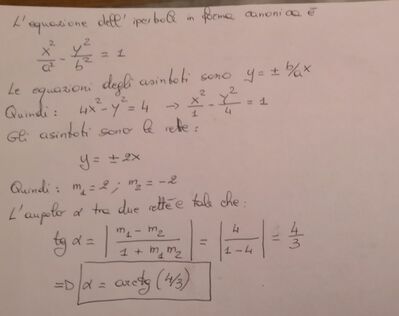 L'equazione dell'iperbole in forma canonica è
x²/a² - y²/b² = 1
Le equazioni degli asintoti sono y = ± b/a x
Quindi: 4x² - y² = 4 → x²/1 - y²/4 = 1
Gli asintoti sono le rette:
y = ± 2x
Quindi: m₁ = 2 ; m₂ = -2
L'angolo α tra due rette è tale che:
tg α = | (m₁ - m₂)/(1 + m₁ m₂) | = | 4/(1-4) | = 4/3
=D α = arctg (4/3)